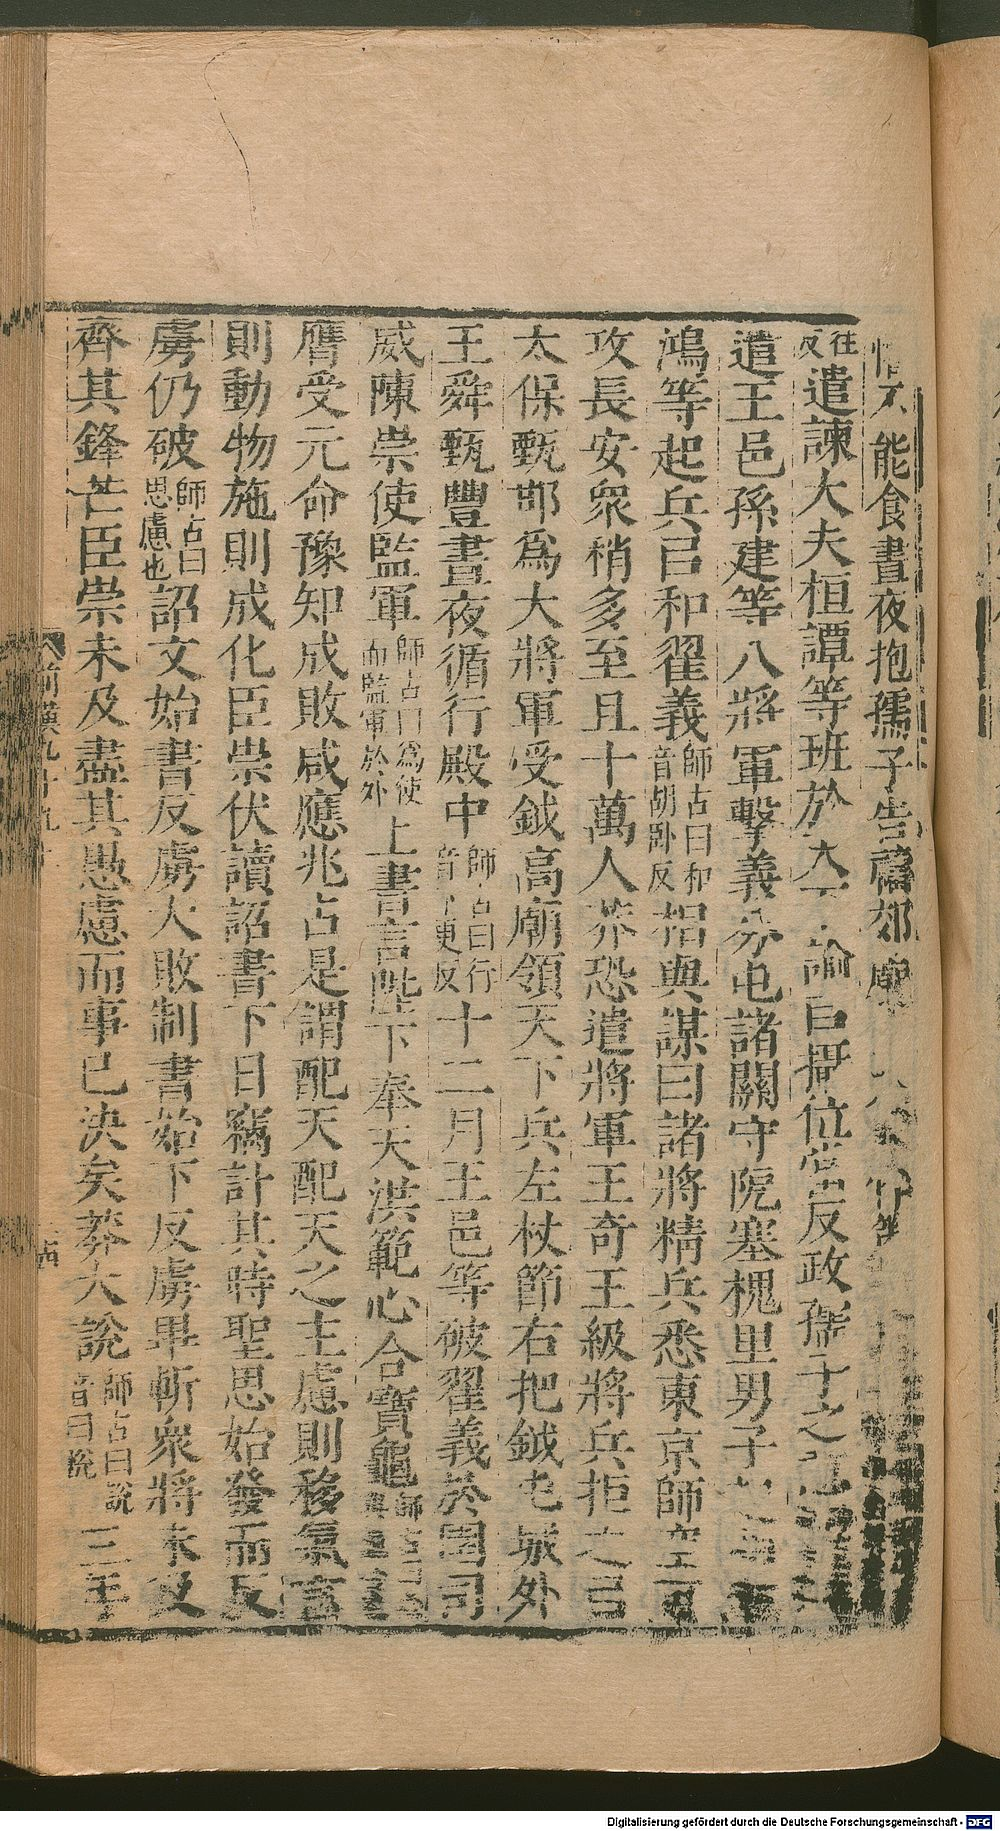 不能食晝夜抱孺子告禱郊廟
往反遣諫大夫桓譚等班於 諭㠯攝位當反政孺子之
遣王邑孫建等八將軍擊義分屯諸關守阸塞槐里男子
鴻等起兵㠯和翟義師古曰和音胡卧反相與謀曰諸將精兵悉東京師空可
攻長安衆稍多至且十萬人莽恐遣將軍王奇王級將兵拒之㠯
太保甄邯爲大將軍受鉞高廟領天下兵左杖節右把鉞屯城外
王舜甄豐晝夜循行殿中師古曰行音 更反十二月王邑等破翟義於圉司
威陳崇使監軍師古曰爲使而監軍於外上書言陛下奉天洪範心合寶龜
膺受元命豫知成敗咸應兆占是謂配天配天之主慮則移氣言
則動物施則成化臣崇伏讀詔書下日竊計其時聖思始發而反
虜仍破師古曰思慮也詔文始書反虜大敗制書始下反虜畢斬衆將未及
齊其鋒芒臣崇未及盡其愚慮而事已決矣莽大說師古曰說音曰悅三年
前漢九十九
Digitalisierung gefördert durch die Deutsche Forschungsgemeinschaft - DFG